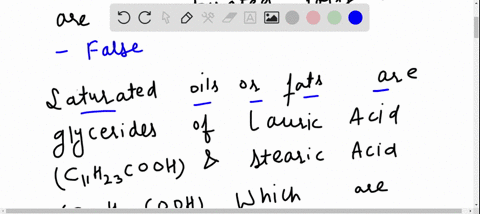 are
- False
Saturated oils or fats are
glycerides of Lauric Acid
(C₁₁H₂₃COOH) & stearic Acid
COOH) Which are